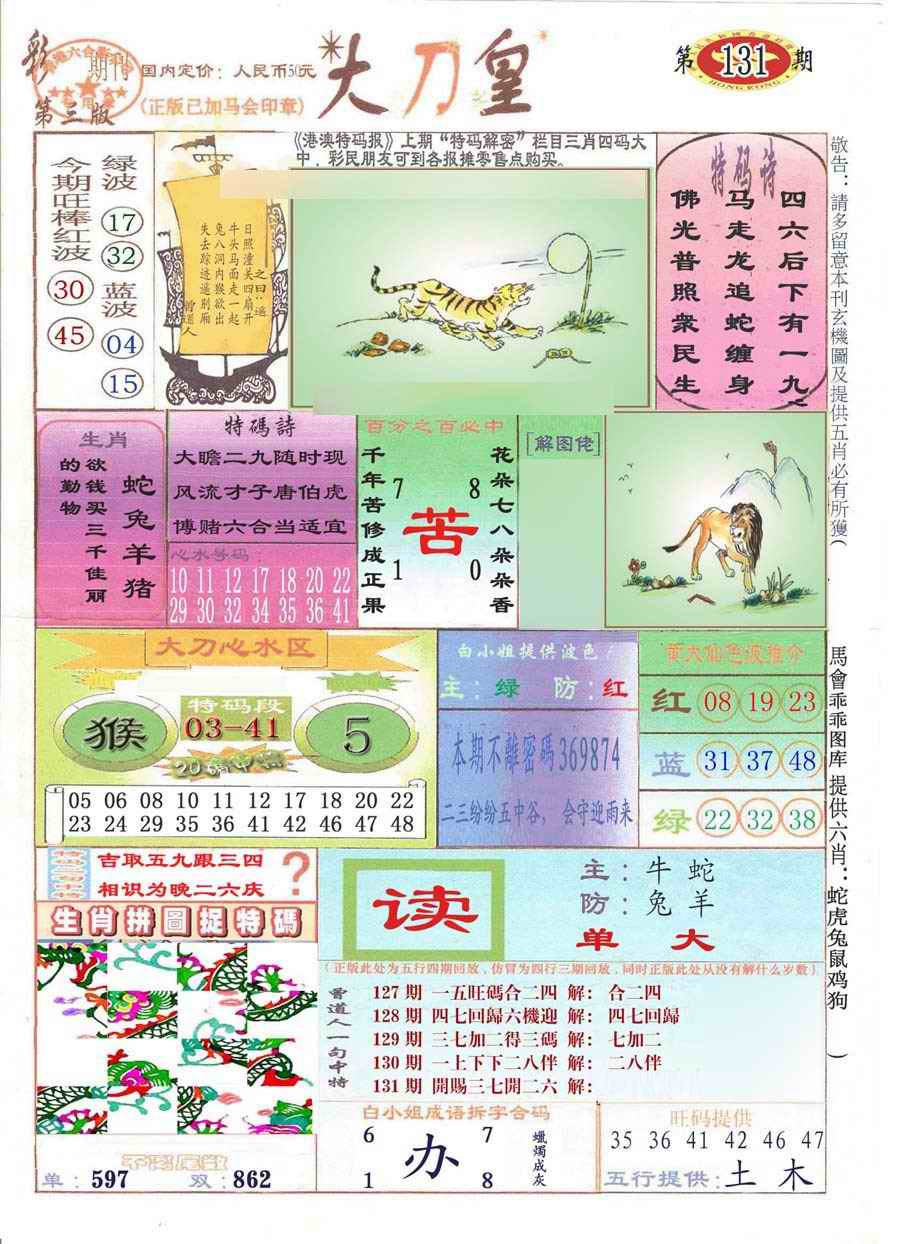 彩
期刊
第三版
国内定价：人民币50元
(正版已加马会印章)
大刀皇
第131期
HONG KONG
《港澳特码报》上期“特码解密”栏目三肖四码大
中，彩民朋友可到各报摊零售点购买。
今期旺棒红波
30
45
绿波
17
32
蓝波
04
15
日照潼关四扇开
牛头马面走一起
兔八洞内猴欲出
失去踪迹遁别厢
曾道人
之曰
特码诗
四六后下有一九
马走龙追蛇缠身
佛光普照衆民生
敬告：請多留意本刊玄機圖及提供五肖必有所獲(
生肖
蛇兔羊猪
欲钱买三千佳丽
的勤物
特碼詩
大瞻二九随时现
风流才子唐伯虎
博赌六合当适宜
心水号码：
10 11 12 17 18 20 22
29 30 32 34 35 36 41
百分之百必中
千年苦修成正果
7 8
苦
1 0
花朵七八朵朵香
[解图佬]
大刀心水区
猴
特码段
03-41
5
20碼中特
05 06 08 10 11 12 17 18 20 22
23 24 29 35 36 41 42 46 47 48
白小姐提供波色
主：绿 防：红
本期不離密碼369874
二三纷纷五中谷，会守迎雨来
黄大仙色波推介
红 08 19 23
蓝 31 37 48
绿 22 32 38
馬會乖乖图库 提供六肖：蛇虎兔鼠鸡狗 )
吉取五九跟三四
相识为晚二六庆
?
生肖拼圖捉特碼
读
主：牛 蛇
防：兔 羊
单 大
(正版此处为五行四期回放，仿冒为四行三期回放，同时正版此处从没有解什么岁数)
曾道人一句中特
127期 一五旺碼合二四 解： 合二四
128期 四七回歸六機迎 解： 四七回歸
129期 三七加二得三碼 解： 七加二
130期 一上下下二八伴 解： 二八伴
131期 開賜三七開二六 解：
单：597 双：862
白小姐成语拆字合码
6 7
办
1 8
蠟燭成灰
旺码提供
35 36 41 42 46 47
五行提供：土 木